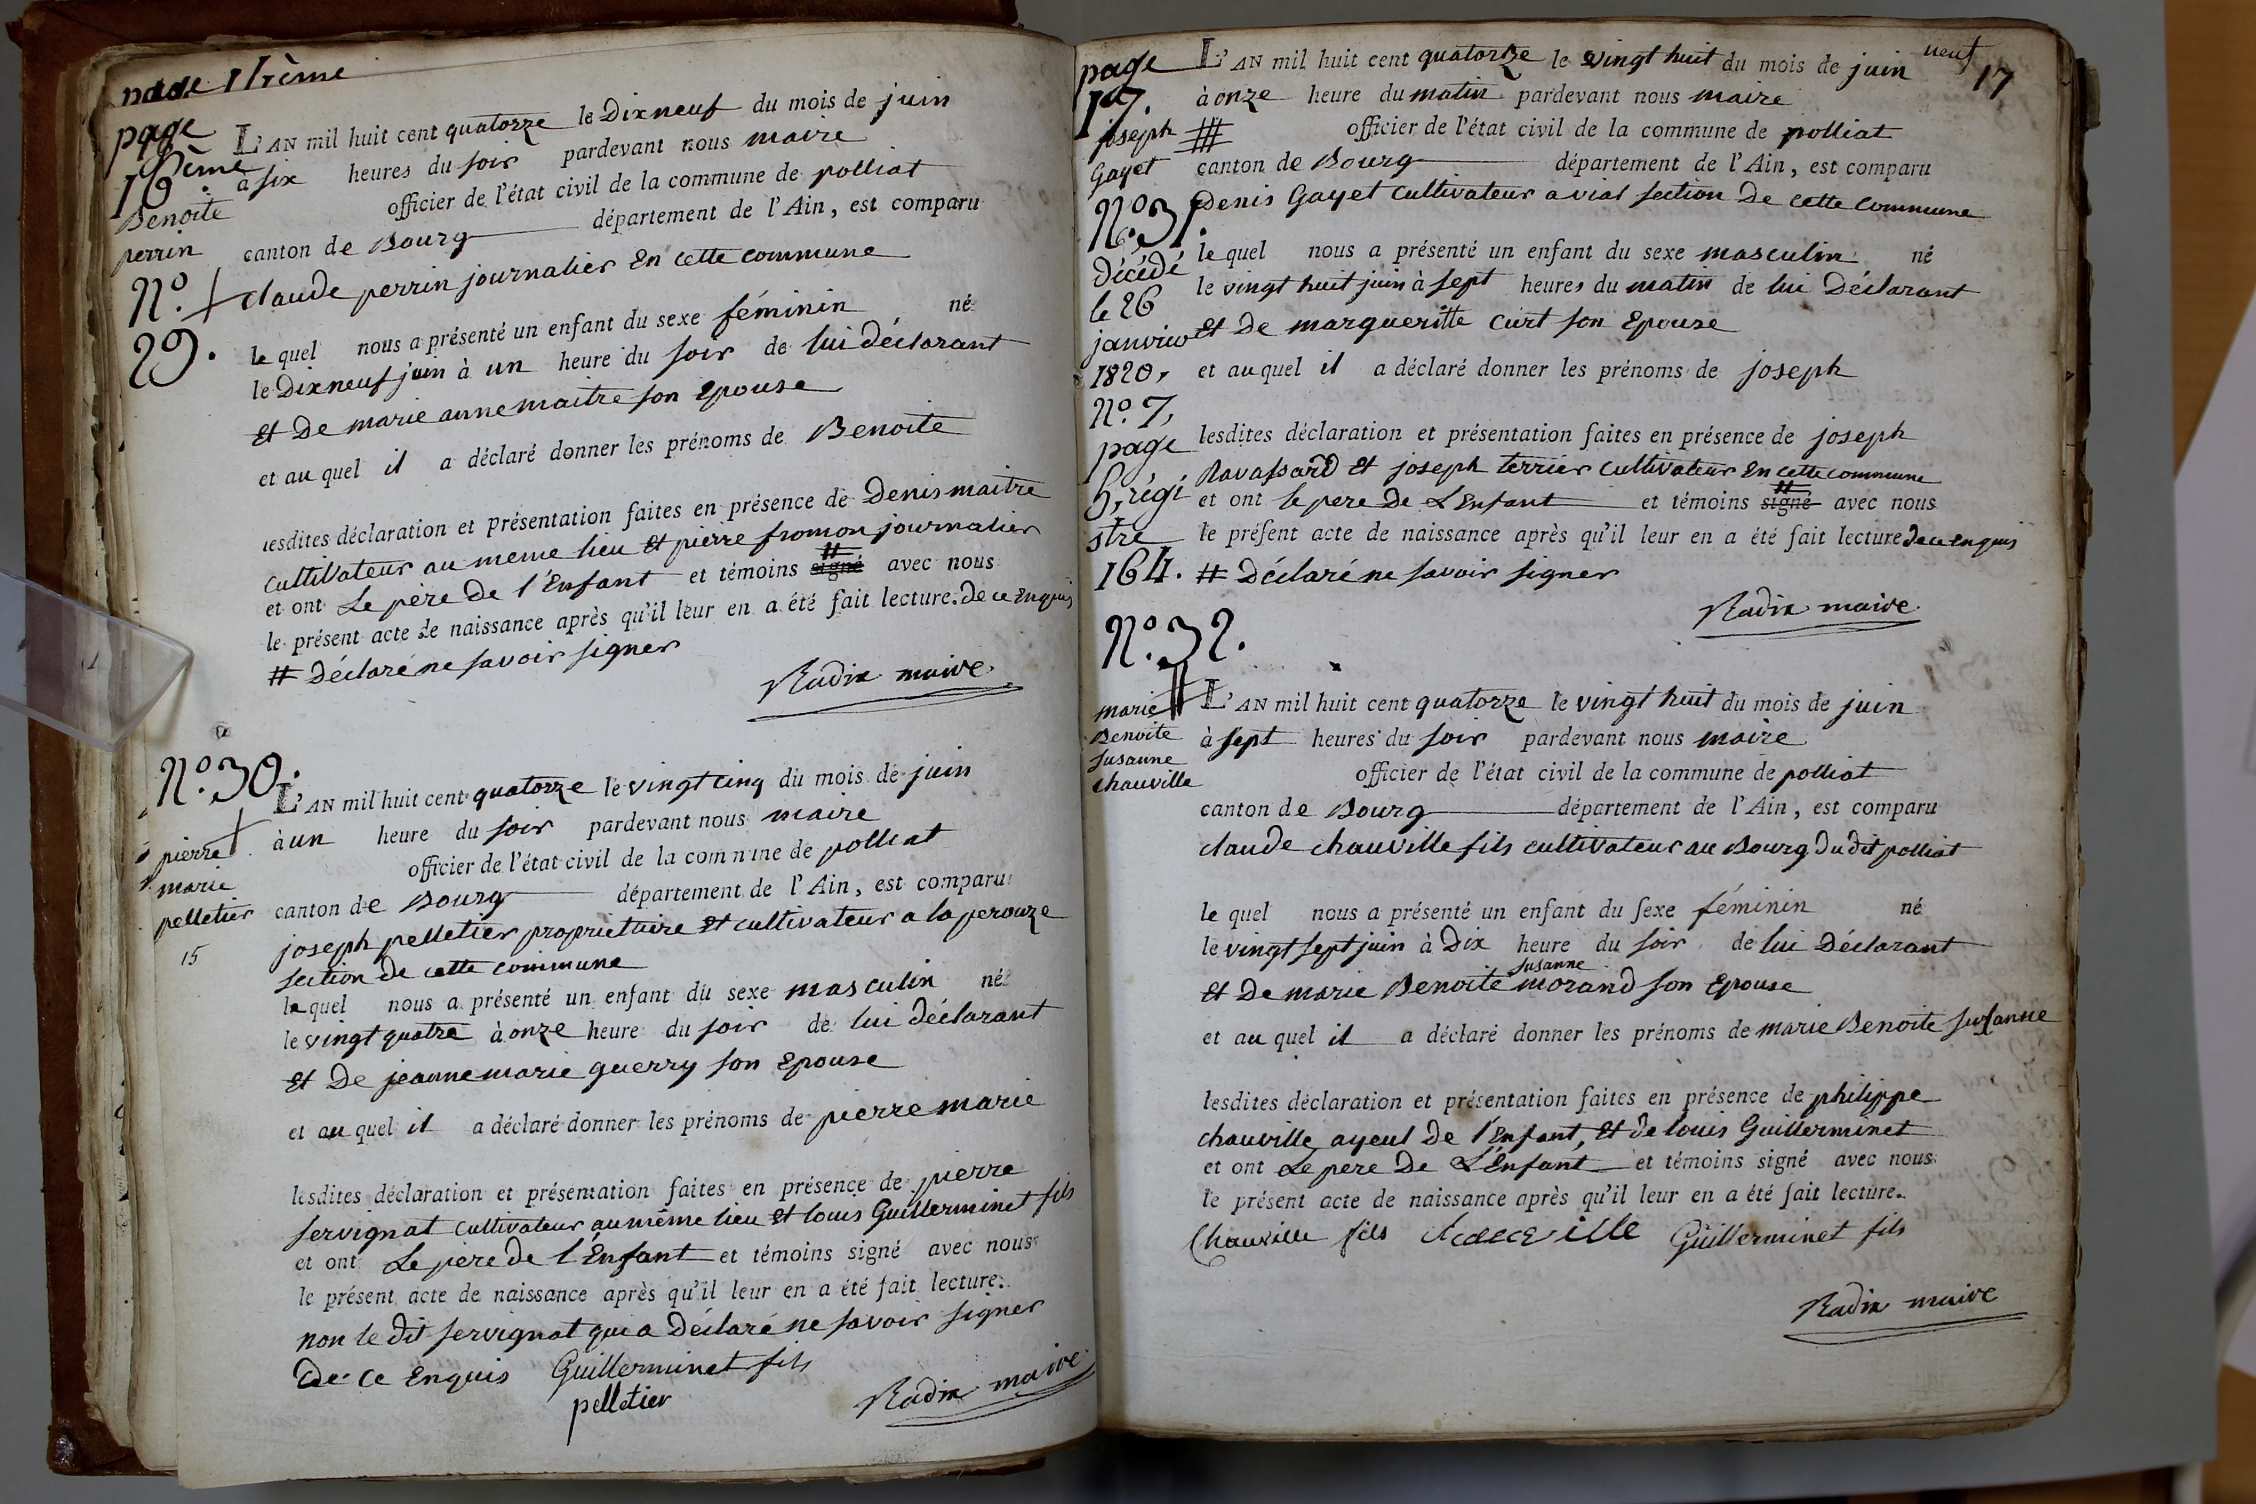 page 16ème
page
16ème.
Benoite
perrin
N.o
29.
L'AN mil huit cent quatorze le Dixneuf du mois de juin
à six heures du soir pardevant nous maire
officier de l'état civil de la commune de polliat
canton de Bourg département de l'Ain, est comparu
claude perrin journalier En cette commune
le quel nous a présenté un enfant du sexe féminin né
le Dixneuf juin à un heure du soir de lui déclarant
Et De marie anne maitre son Epouse
et au quel il a déclaré donner les prénoms de Benoite
lesdites déclaration et présentation faites en présence de Denis maitre
cultivateur au meme lieu Et pierre fromon journalier
et ont Le père De l'Enfant et témoins # signé avec nous
le présent acte de naissance après qu'il leur en a été fait lecture. De ce Enquis
# Déclaré ne savoir signer
Radix maire
N.o 30.
pierre
marie
pelletier
15
L'AN mil huit cent quatorze le vingt cinq du mois de juin
à un heure du soir pardevant nous maire
officier de l'état civil de la commune de polliat
canton de Bourg département de l'Ain, est comparu
joseph pelletier proprietaire Et cultivateur a la perouze
section de cette commune
le quel nous a présenté un enfant du sexe masculin né
le vingt quatre à onze heure du soir de lui déclarant
Et De jeanne marie guerry son Epouse
et au quel il a déclaré donner les prénoms de pierre marie
lesdites déclaration et présentation faites en présence de pierre
servignat cultivateur au même lieu Et louis Guillerminet fils
et ont Le père de l'Enfant et témoins signé avec nous
le présent acte de naissance après qu'il leur en a été fait lecture.
non le dit servignat qui a Déclaré ne savoir signer
De ce Enquis Guillerminet fils
pelletier
Radix maire
neuf
17
page
17.
joseph
Gayet
N.o 31.
Décédé
le 26
janvier
1820,
N.o 7,
page
5, régi
stre
164.
L'AN mil huit cent quatorze le vingt huit du mois de juin
à onze heure du matin pardevant nous maire
officier de l'état civil de la commune de polliat
canton de Bourg département de l'Ain, est comparu
Denis Gayet cultivateur a vial section De cette commune
le quel nous a présenté un enfant du sexe masculin né
le vingt huit juin à sept heures du matin de lui Déclarant
Et De margueritte Curt son Epouse
et au quel il a déclaré donner les prénoms de joseph
lesdites déclaration et présentation faites en présence de joseph
Ravassard Et joseph terrier cultivateur En cette commune
et ont le pere De L'Enfant et témoins # signé avec nous
le présent acte de naissance après qu'il leur en a été fait lecture De ce enquis
# Déclaré ne savoir signer
Radix maire
N.o 32.
marie
Benoite
susanne
chauville
L'AN mil huit cent quatorze le vingt huit du mois de juin
à sept heures du soir pardevant nous maire
officier de l'état civil de la commune de polliat
canton de Bourg département de l'Ain, est comparu
claude chauville fils cultivateur au Bourg du dit polliat
le quel nous a présenté un enfant du sexe féminin né
le vingt sept juin à Dix heure du soir de lui Déclarant
susanne
Et De marie Benoite morand son Epouse
et au quel il a déclaré donner les prénoms de marie Benoite susanne
lesdites déclaration et présentation faites en présence de philippe
chauville ayeul de l'Enfant, Et de louis Guillerminet
et ont Le pere De L'Enfant et témoins signé avec nous
le présent acte de naissance après qu'il leur en a été fait lecture.
Chauville fils chauville Guillerminet fils
Radix maire